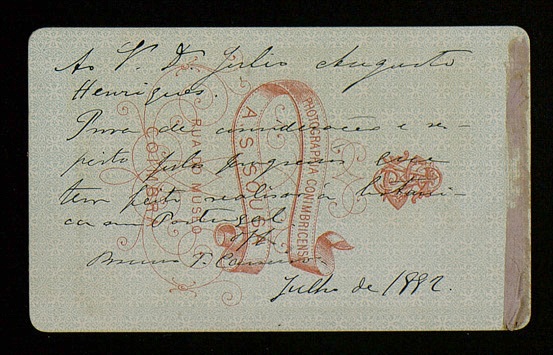 Ao Sr. Dr. Julio Augusto
Henriques.
Prova de consideração e res-
peito pelos progressos que
tem feito realisar a botani-
ca em Portugal
off.
Julho de 1882.
PHOTOGRAPHIA CONIMBRICENSE
A. S. SOUSA
RUA DO MUSEU
COIMBRA